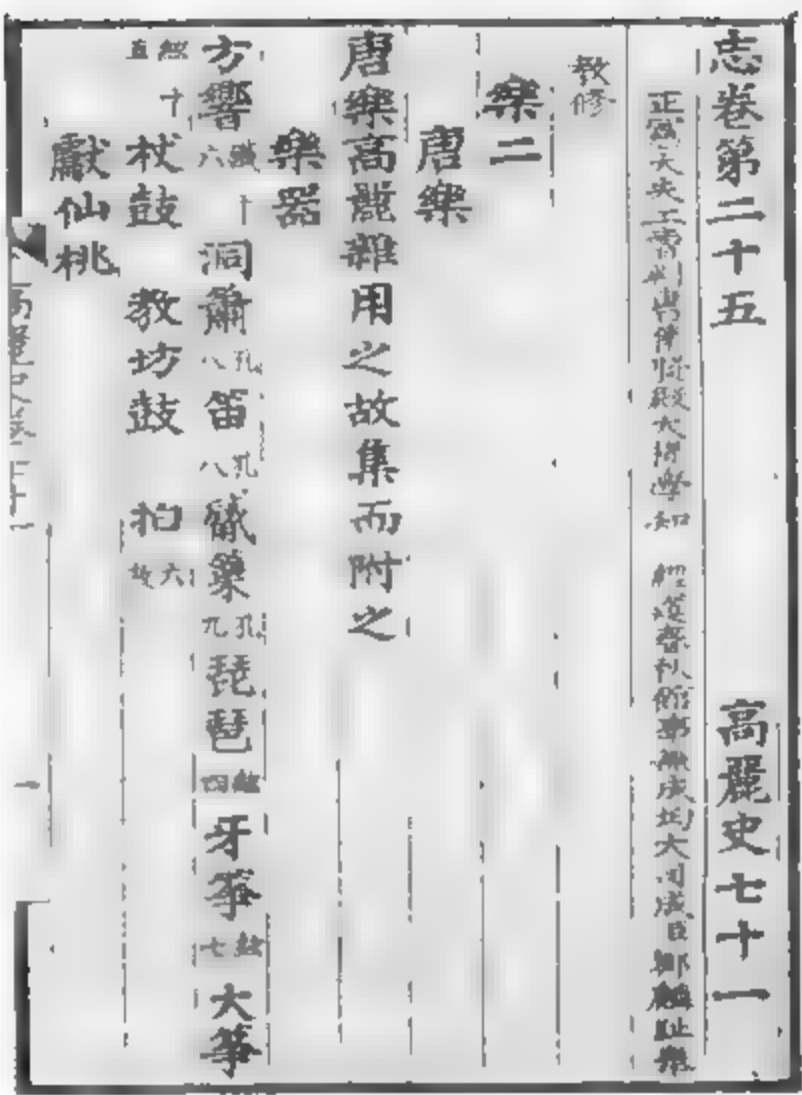 志卷第二十五 高麗史七十一
正憲大夫工曹判書集賢殿大提學知 經筵春秋館事兼成均大司成臣鄭麟趾奉
教修
樂二
唐樂
唐樂高麗雜用之故集而附之
樂器
方響鐵十六 洞簫孔八 笛孔八 觱篥孔九 琵琶絃四 牙箏絃七 大箏
絃十五 杖鼓 教坊鼓 拍六枚
獻仙桃
高麗史卷七十一 一